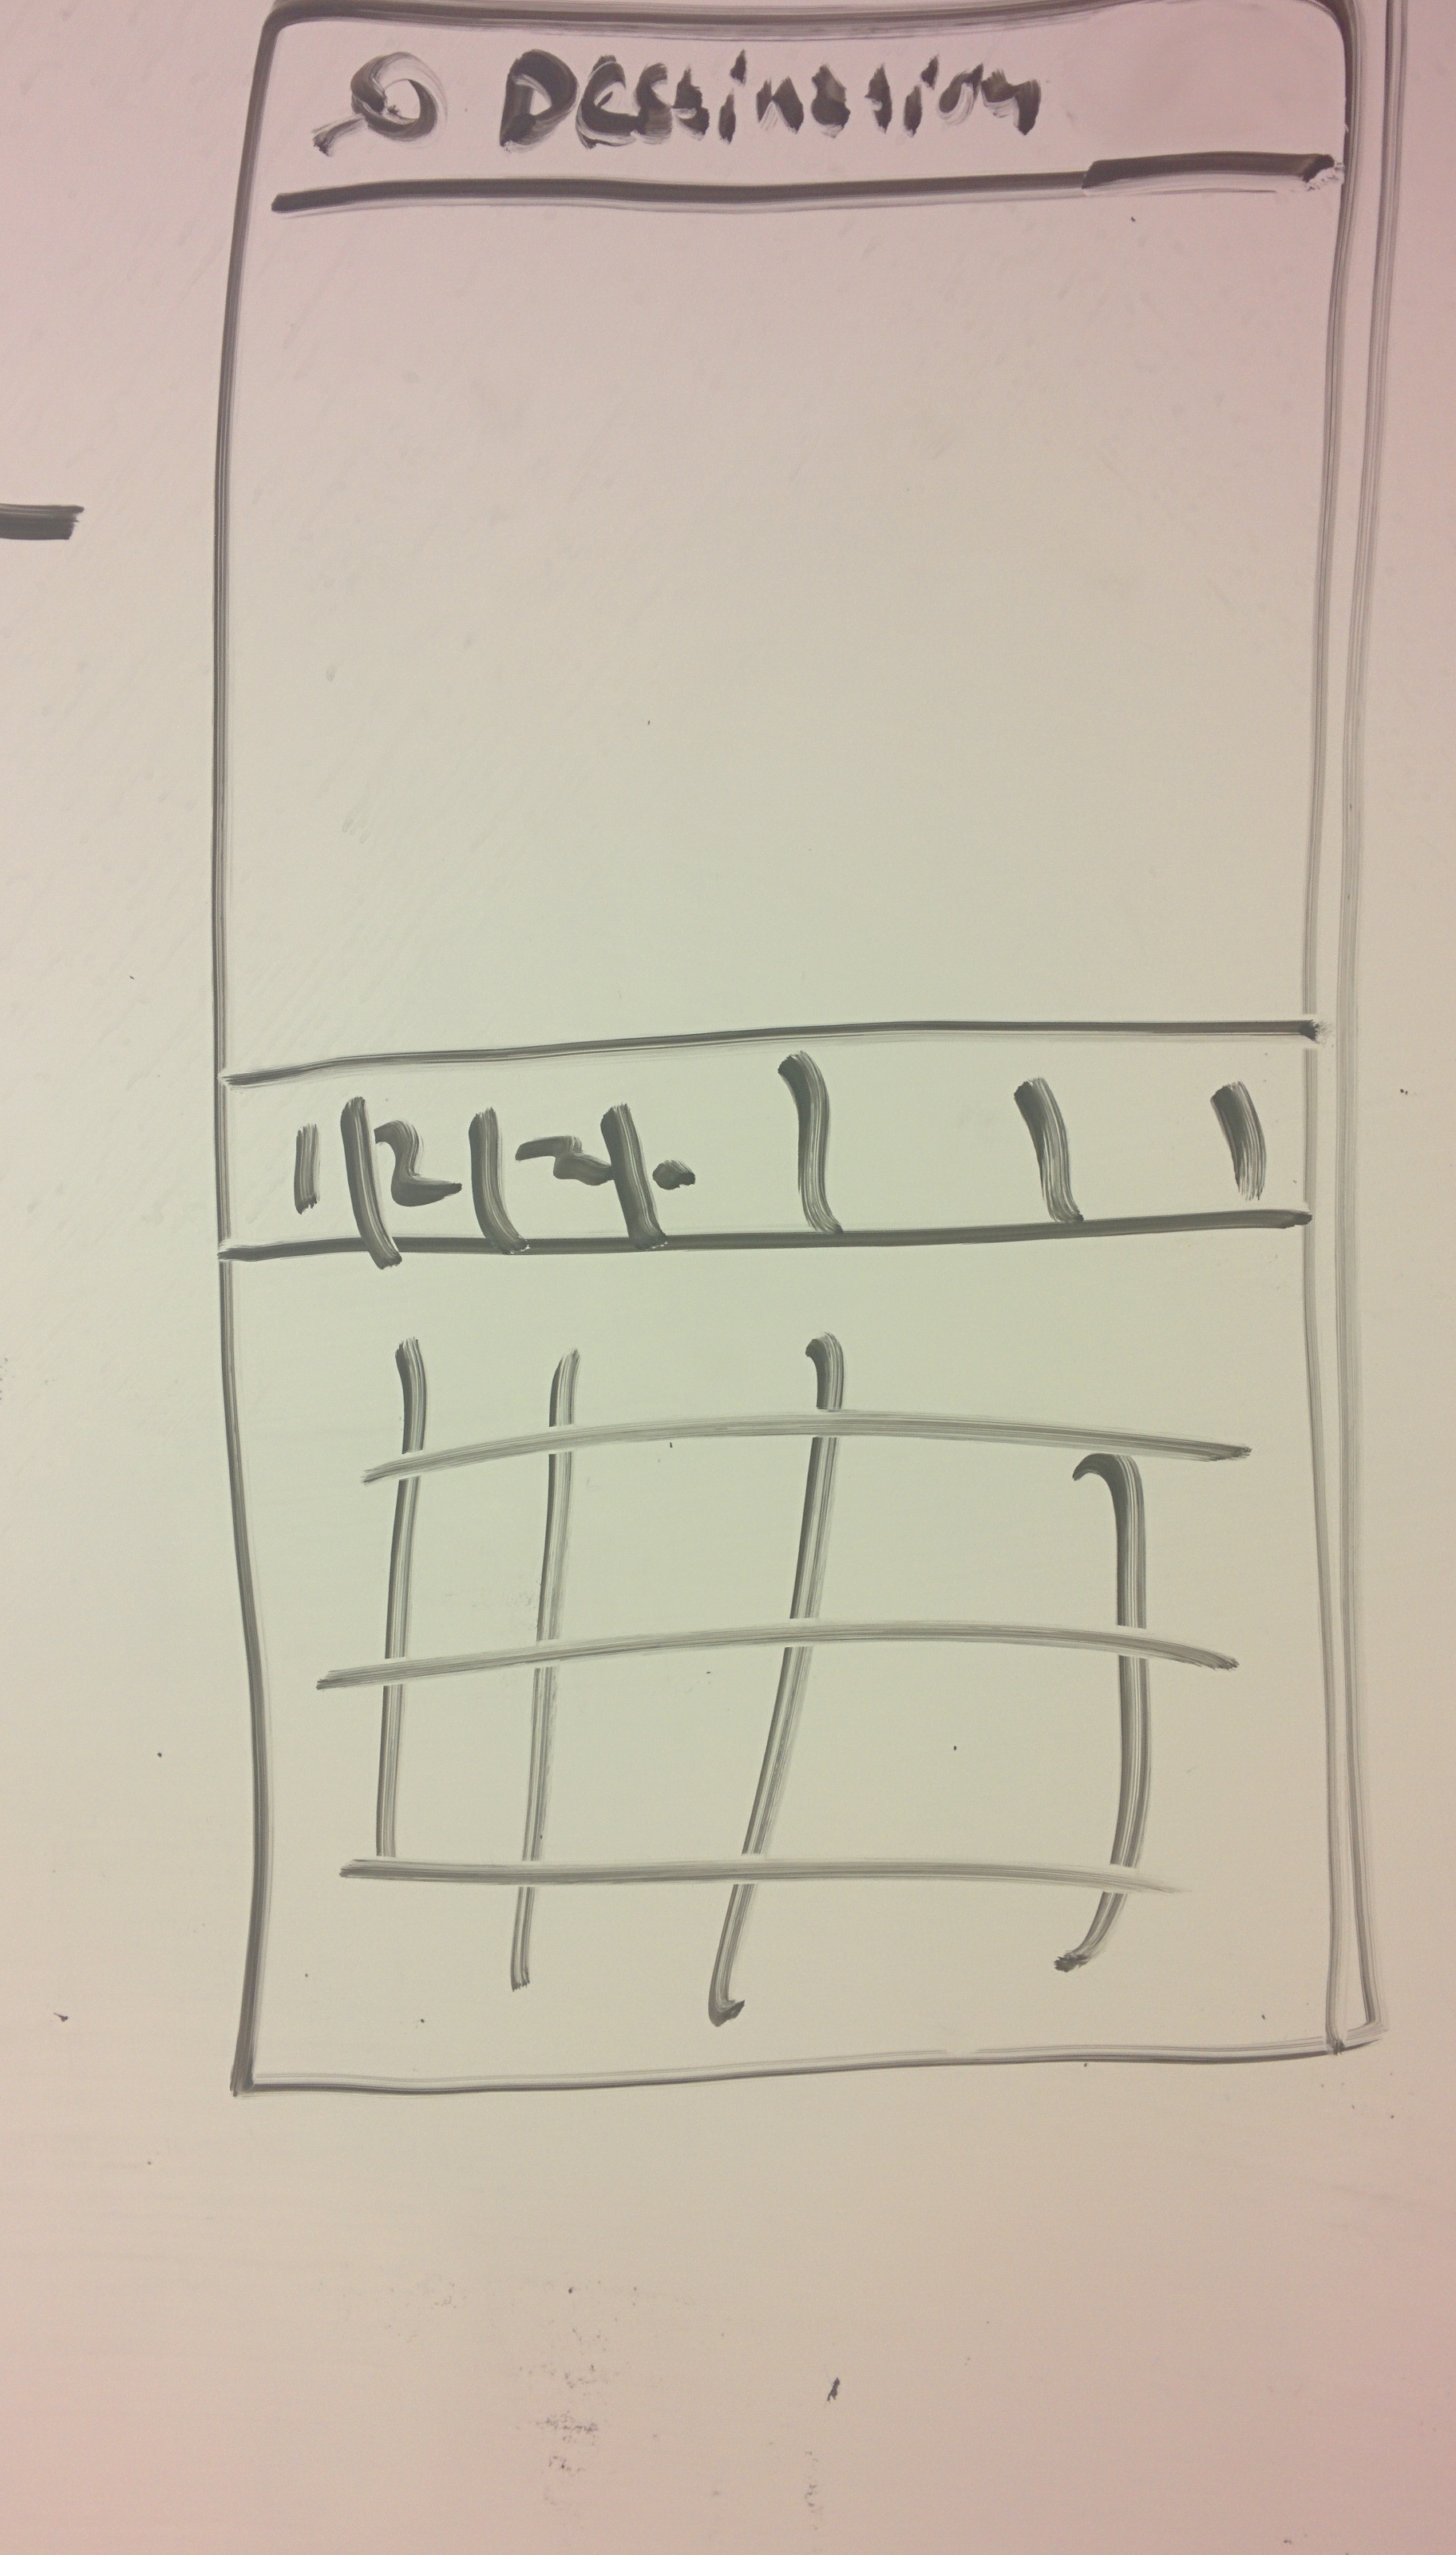 Destination
1 | 2 | 3 | . | | |